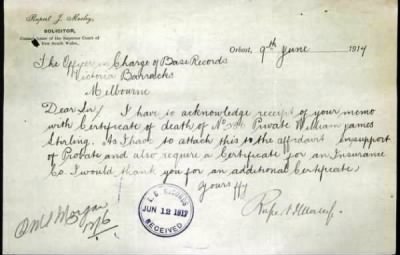 Rupert J. Mosley,
SOLICITOR,
Commissioner of the Supreme Court of
New South Wales.
Orbost, 9th June 1917
The Officer in Charge of Base Records
Victoria Barracks
Melbourne
Dear Sir/ I have to acknowledge receipt of your memo
with Certificate of death of No Private William James
Stirling. As I have to attach this to the affidavit in support
of Probate and also require a Certificate for an Insurance
Co. I would thank you for an additional Certificate.
Yours ffy
RECORDS
JUN 12 1917
RECEIVED